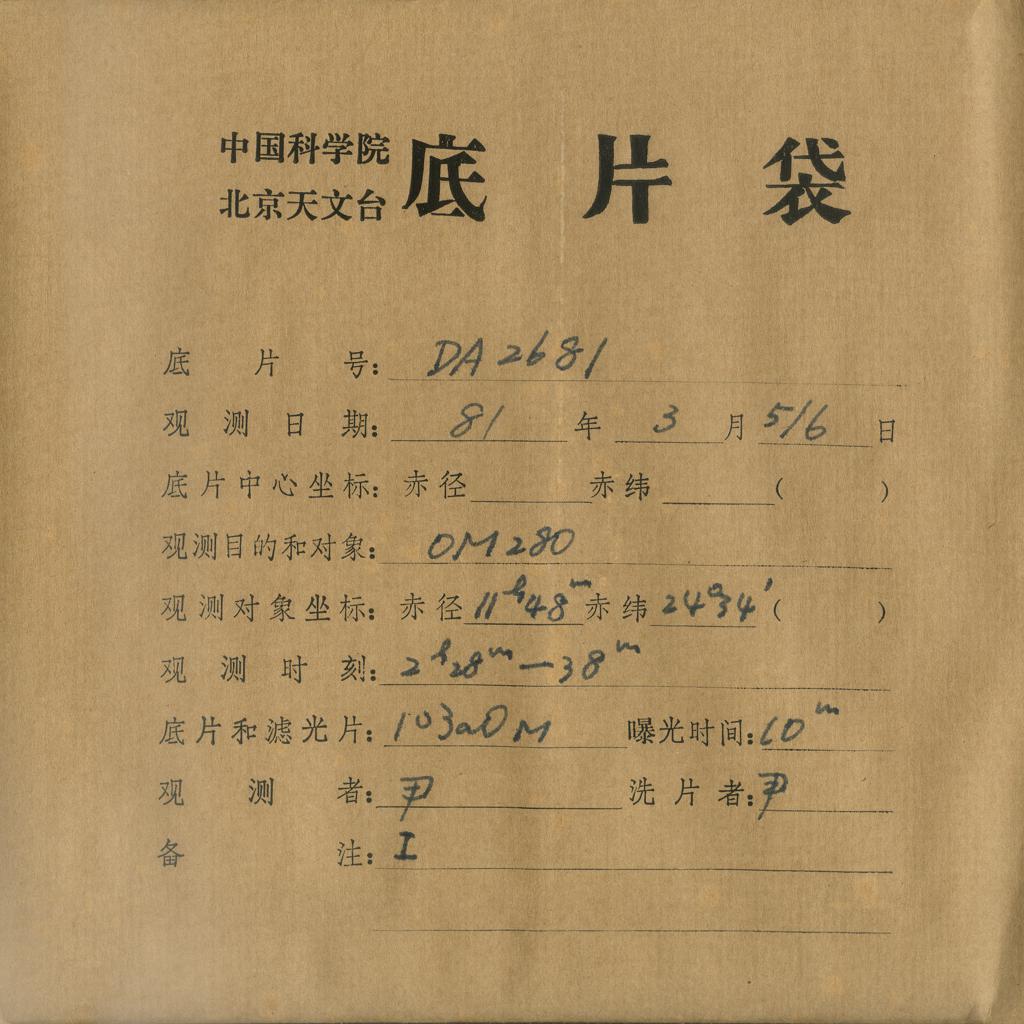 中国科学院
北京天文台
底片袋
底片号: DA2681
观测日期: 81年3月5/6日
底片中心坐标: 赤径 赤纬 ( )
观测目的和对象: OM280
观测对象坐标: 赤径11h48m赤纬24°34′( )
观测时刻: 2h28m—38m
底片和滤光片: 103aOM 曝光时间:10m
观测者: 尹 洗片者:尹
备注: I